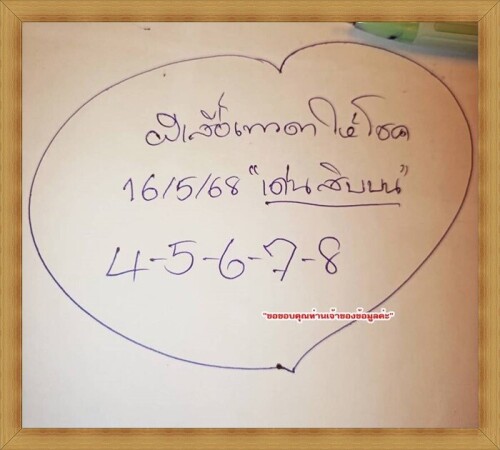 ผีเสื้อเทวดาให้โชค
16/5/68 "เด่นสิบบน"
4-5-6-7-8
"ขอขอบคุณท่านเจ้าของข้อมูลค่ะ"